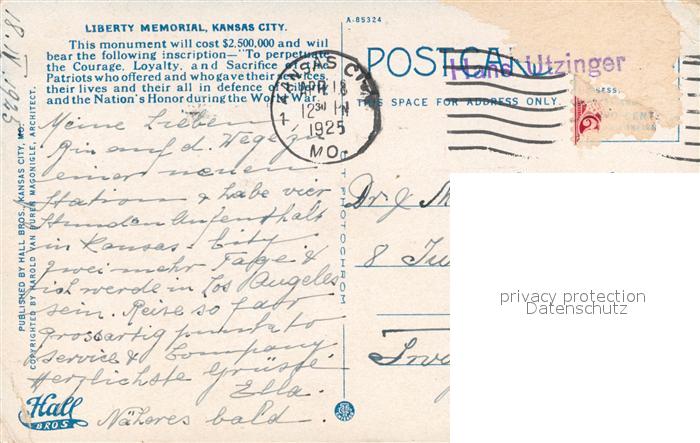 LIBERTY MEMORIAL, KANSAS CITY.
This monument will cost $2,500,000 and will
bear the following inscription—"To perpetuate
the Courage, Loyalty, and Sacrifice of the
Patriots who offered and who gave their services,
their lives and their all in defence of Liberty
and the Nation's Honor during the World War.
18. IV. 1925
PUBLISHED BY HALL BROS., KANSAS CITY, MO.
COPYRIGHTED BY HAROLD VAN BUREN MAGONIGLE, ARCHITECT.
Meine Lieben
Bin auf d. Wege zu
einer neuen
Station & habe vier
Stunden Aufenthalt
in Kansas-City
zwei mehr Tage &
ich werde in Los Angeles
sein. Reise so far
grossartig
service & Company
Herzlichste Grüsse
Ella.
Näheres bald.
Hall
BROS
A-85324
POSTCA
Hans Utzinger
THIS SPACE FOR ADDRESS ONLY.
KANSAS CITY
APR 18
12 30 PM
1925
MO.
7
2
PHOTOCHROM
Dr. J
8
privacy protection
Datenschutz